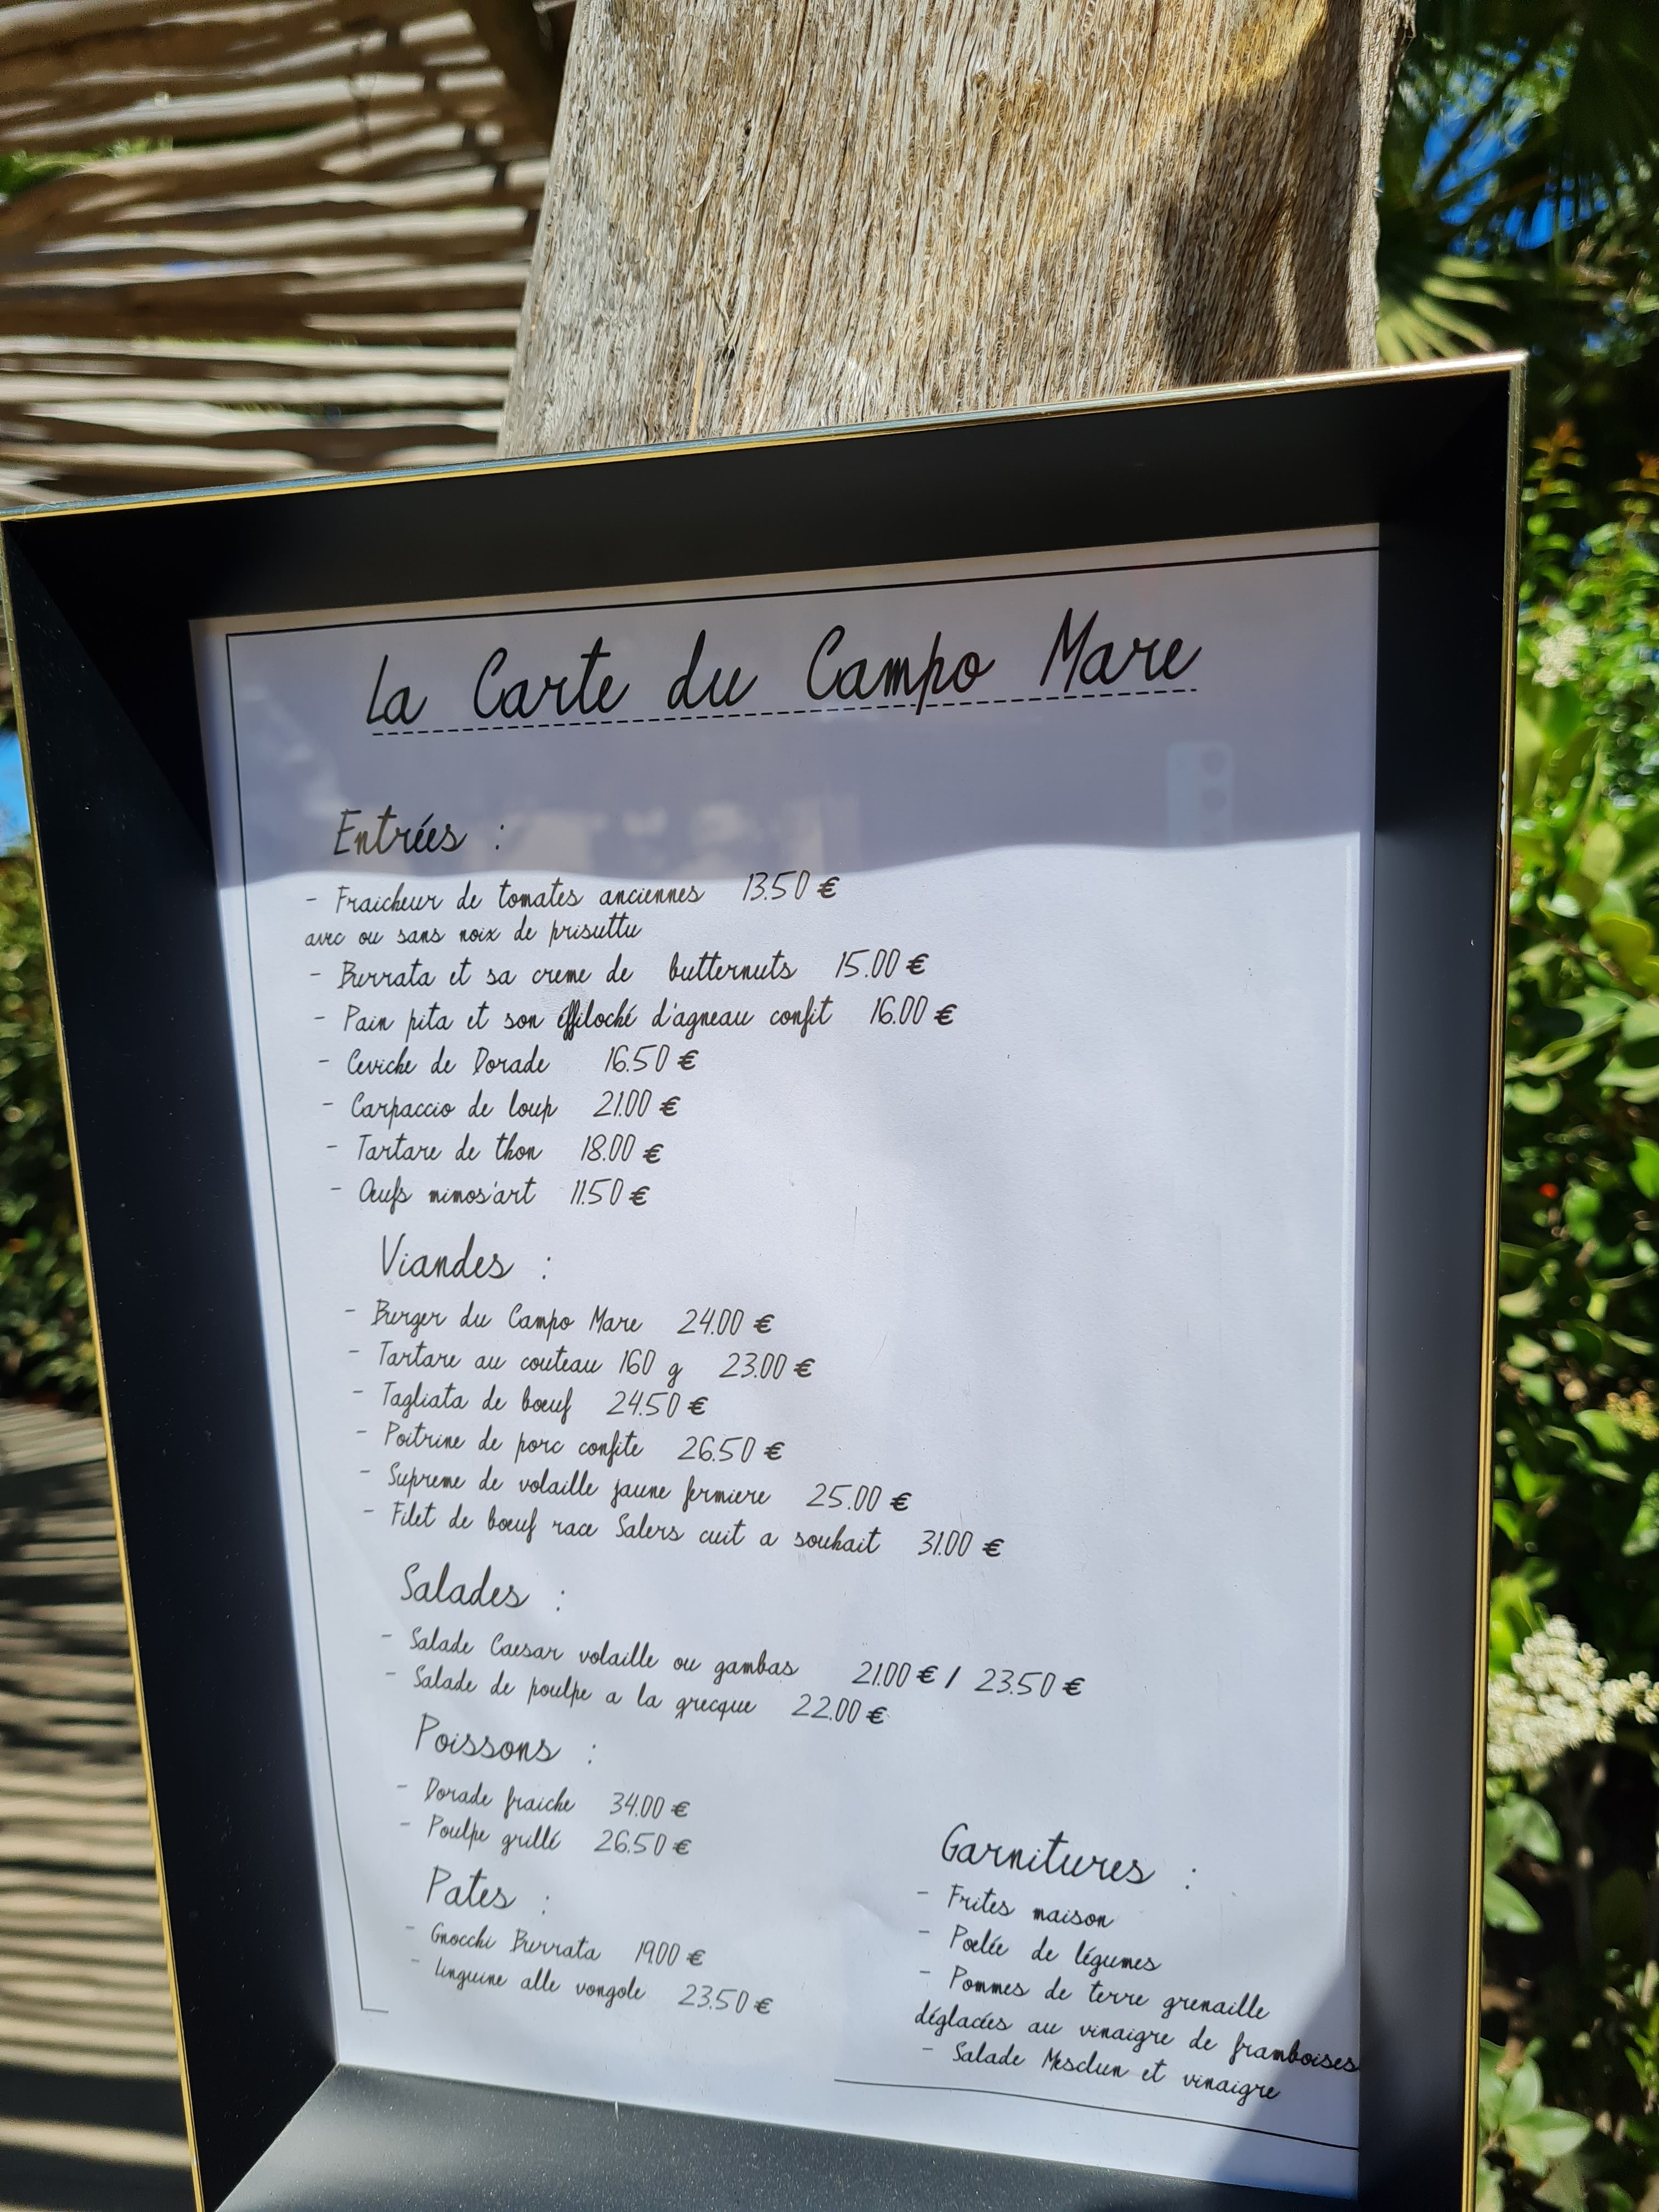 La Carte du Campo Mare
Entrées :
- Fraicheur de tomates anciennes 13.50 €
avec ou sans noix de prisuttu
- Burrata et sa creme de butternuts 15.00 €
- Pain pita et son éffiloché d'agneau confit 16.00 €
- Ceviche de Dorade 16.50 €
- Carpaccio de loup 21.00 €
- Tartare de thon 18.00 €
- Œufs mimos'art 11.50 €
Viandes :
- Burger du Campo Mare 24.00 €
- Tartare au couteau 160 g 23.00 €
- Tagliata de bœuf 24.50 €
- Poitrine de porc confite 26.50 €
- Supreme de volaille jaune fermiere 25.00 €
- Filet de bœuf race Salers cuit a souhait 31.00 €
Salades :
- Salade Caesar volaille ou gambas 21.00 € / 23.50 €
- Salade de poulpe a la grecque 22.00 €
Poissons :
- Dorade fraiche 34.00 €
- Poulpe grillé 26.50 €
Pates :
- Gnocchi Burrata 19.00 €
- Linguine alle vongole 23.50 €
Garnitures :
- Frites maison
- Poêlée de légumes
- Pommes de terre grenaille
déglacées au vinaigre de framboises
- Salade Mesclun et vinaigre